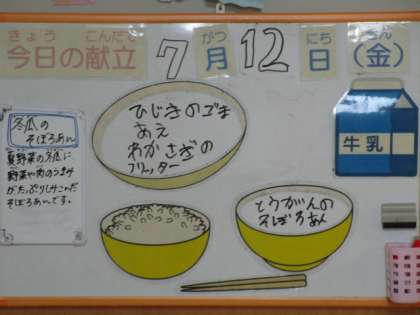 きょう こんだて
今日の献立
7
がつ
月
12
にち
日
きん
(金)
ひじきのごま
あえ
わかさぎの
フリッター
牛乳
冬瓜の
そぼろあん
夏野菜の冬瓜に
野菜や肉のうまみ
がたっぷりしみこんだ
そぼろあんです。
とうがんの
そぼろあん